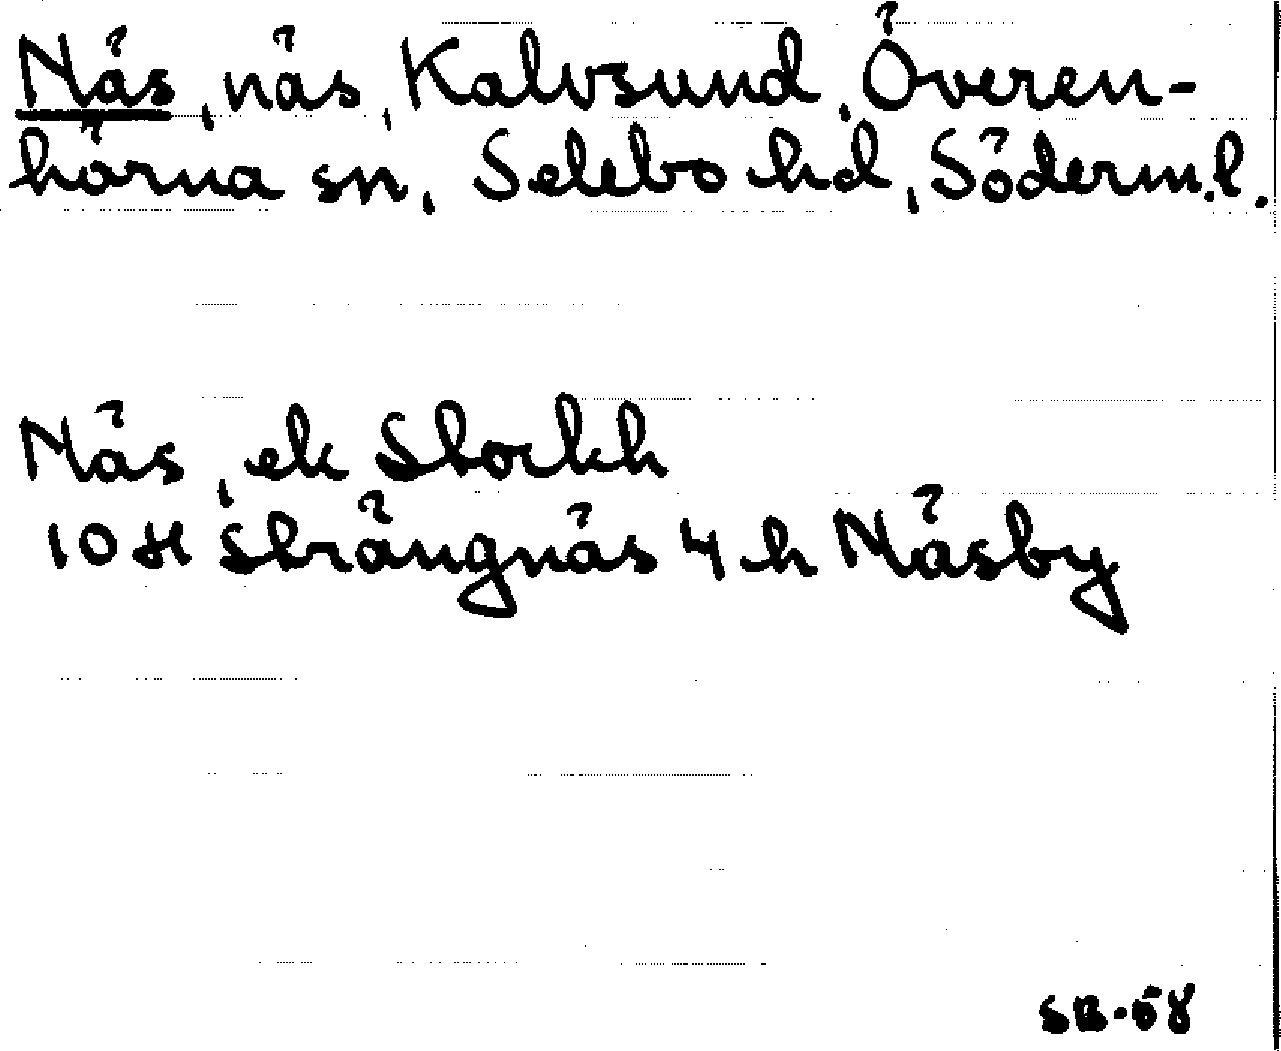 Näs, näs, Kalvsund, Överen-
hörna sn, Selebo hd, Söderm.l.
Näs, ek Stockh
10H Strängnäs 4 h Näsby
SB-58